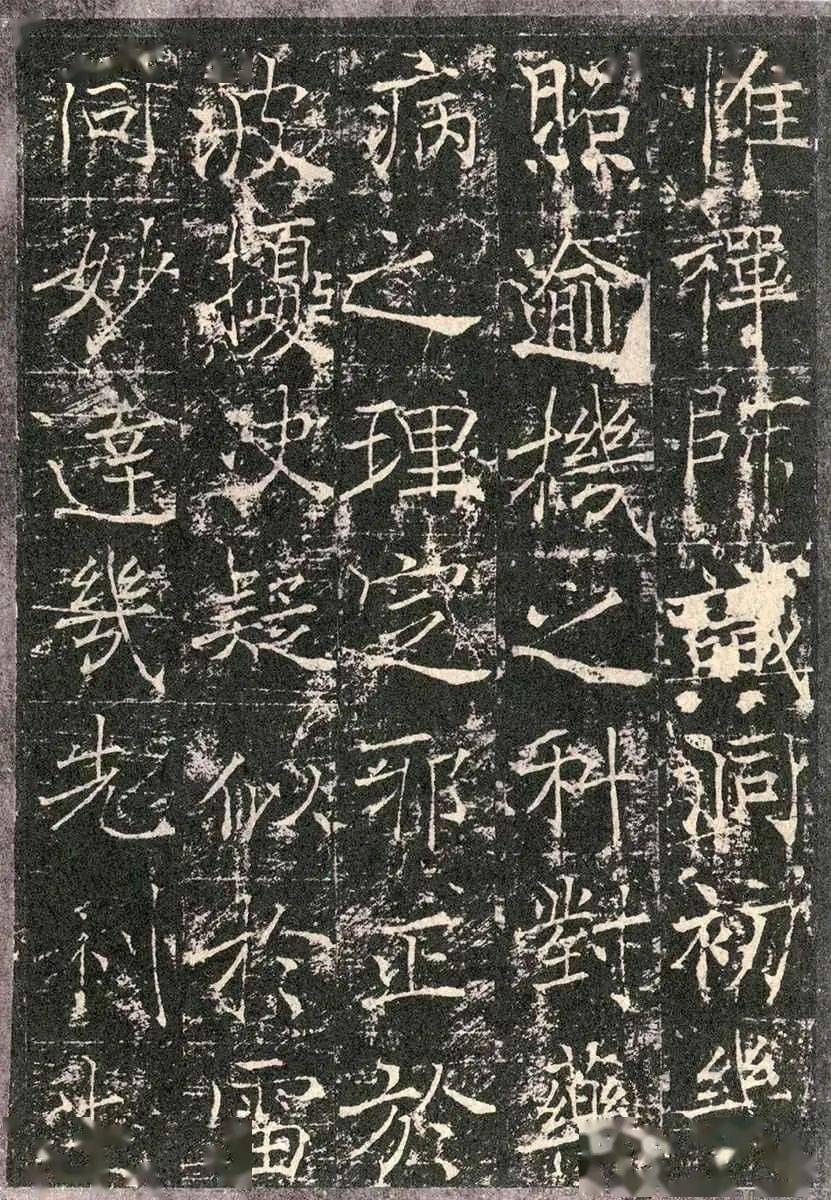 惟禪師識洞初
照逾機之科對藥
病之理定邪正於
决疑似於雷
同妙達幾先